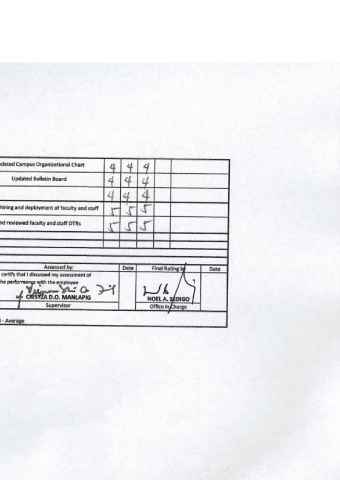 dated Campus Organizational Chart 4 4 4
Updated Bulletin Board 4 4 4
4 4 4
hiring and deployment of faculty and staff 5 5 5
nd reviewed faculty and staff DTRs 5 5 5
Assessed by: Date Final Rating by Date
certify that I discussed my assessment of
he performance with the employee
CRISTZA D.O. MANLAPIG NOEL A. SEDIGO
Supervisor Office in Charge
- Average